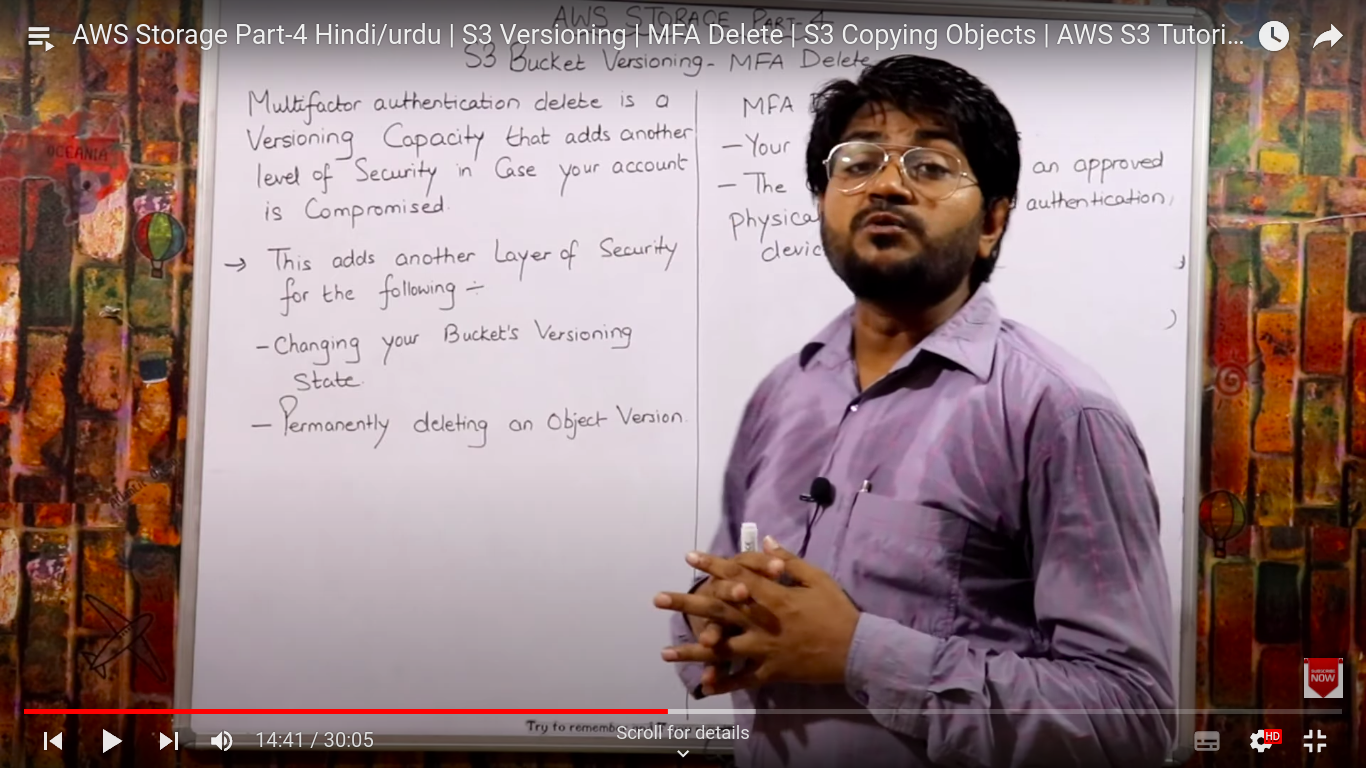 AWS Storage Part-4 Hindi/urdu | S3 Versioning | MFA Delete | S3 Copying Objects | AWS S3 Tutori...
AWS STORAGE PART-4
S3 Bucket Versioning - MFA Delete
Multifactor authentication delete is a
Versioning Capacity that adds another
level of Security in Case your account
is Compromised.
→ This adds another Layer of Security
for the following ÷
- Changing your Bucket's Versioning
State.
- Permanently deleting an Object Version.
MFA
- Your an approved
- The authentication
OCEANIA
SUBSCRIBE
NOW
Try to remember
Scroll for details
14:41 / 30:05
HD